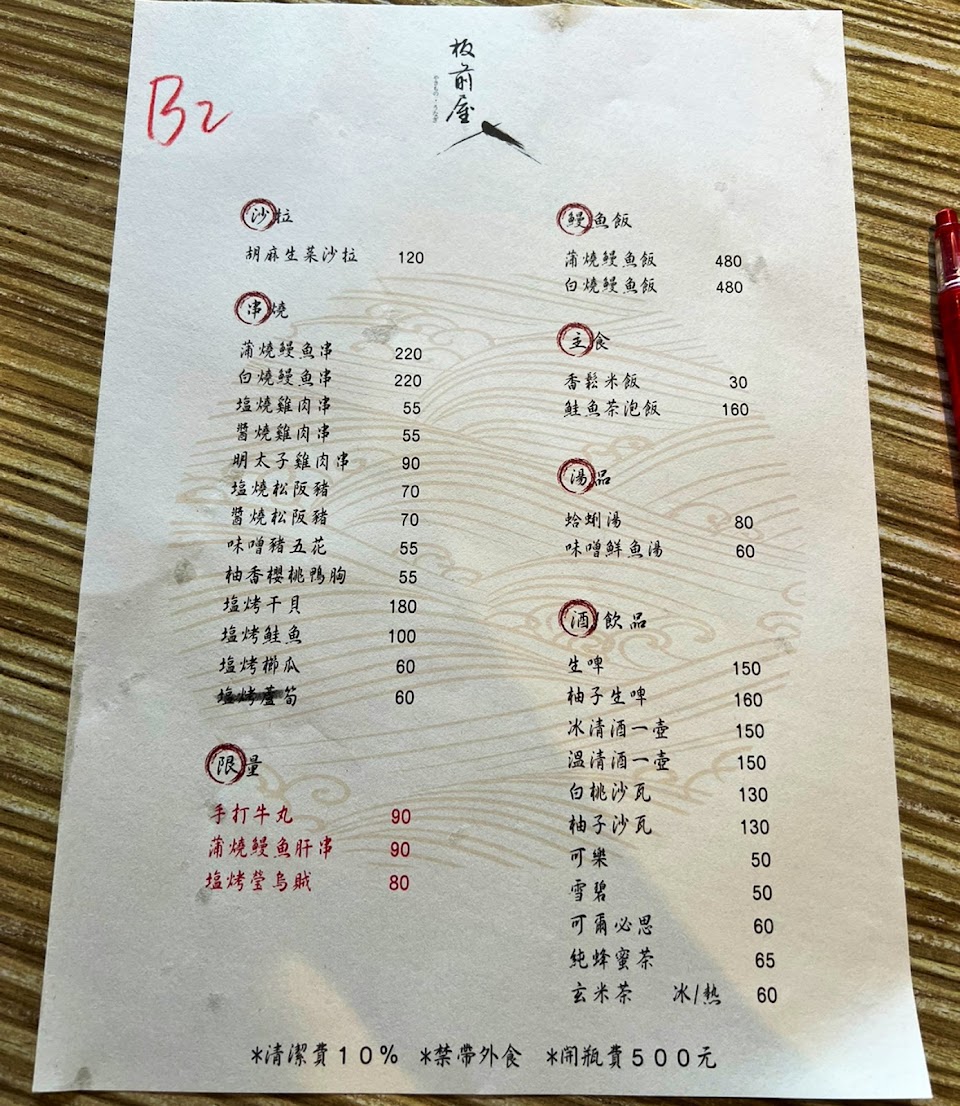 B2
板前屋
沙拉
胡麻生菜沙拉 120
串燒
蒲燒鰻魚串 220
白燒鰻魚串 220
塩燒雞肉串 55
醬燒雞肉串 55
明太子雞肉串 90
塩燒松阪豬 70
醬燒松阪豬 70
味噌豬五花 55
柚香櫻桃鴨胸 55
塩烤干貝 180
塩烤鮭魚 100
塩烤櫛瓜 60
塩烤蘆筍 60
限量
手打牛丸 90
蒲燒鰻魚肝串 90
塩烤瑩烏賊 80
鰻魚飯
蒲燒鰻魚飯 480
白燒鰻魚飯 480
主食
香鬆米飯 30
鮭魚茶泡飯 160
湯品
蛤蜊湯 80
味噌鮮魚湯 60
酒/飲品
生啤 150
柚子生啤 160
冰清酒一壺 150
溫清酒一壺 150
白桃沙瓦 130
柚子沙瓦 130
可樂 50
雪碧 50
可爾必思 60
純蜂蜜茶 65
玄米茶 冰/熱 60
*清潔費10% *禁帶外食 *開瓶費500元